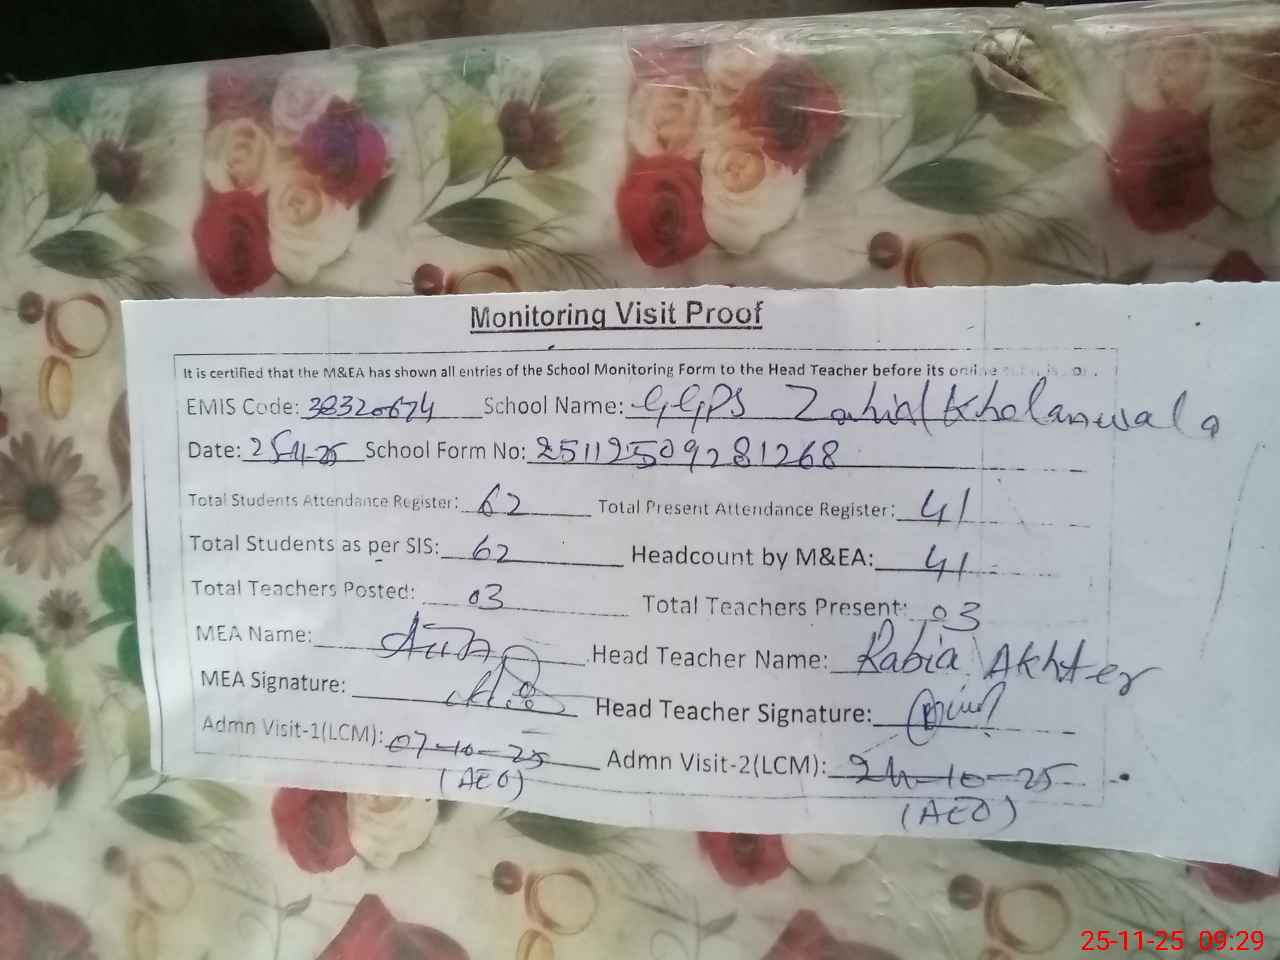 Monitoring Visit Proof
It is certified that the M&EA has shown all entries of the School Monitoring Form to the Head Teacher before its
EMIS Code: 38320674 School Name: GGPS Zahid Kholanwala
Date: 25-11-25 School Form No: 25112509281268
Total Students Attendance Register: 62 Total Present Attendance Register: 41
Total Students as per SIS: 62 Headcount by M&EA: 41
Total Teachers Posted: 03 Total Teachers Present: 03
MEA Name: Head Teacher Name: Rabia Akhter
MEA Signature: Head Teacher Signature:
Admn Visit-1(LCM): 07-10-25 Admn Visit-2(LCM): 24-10-25
(AEO) (AEO)
25-11-25 09:29